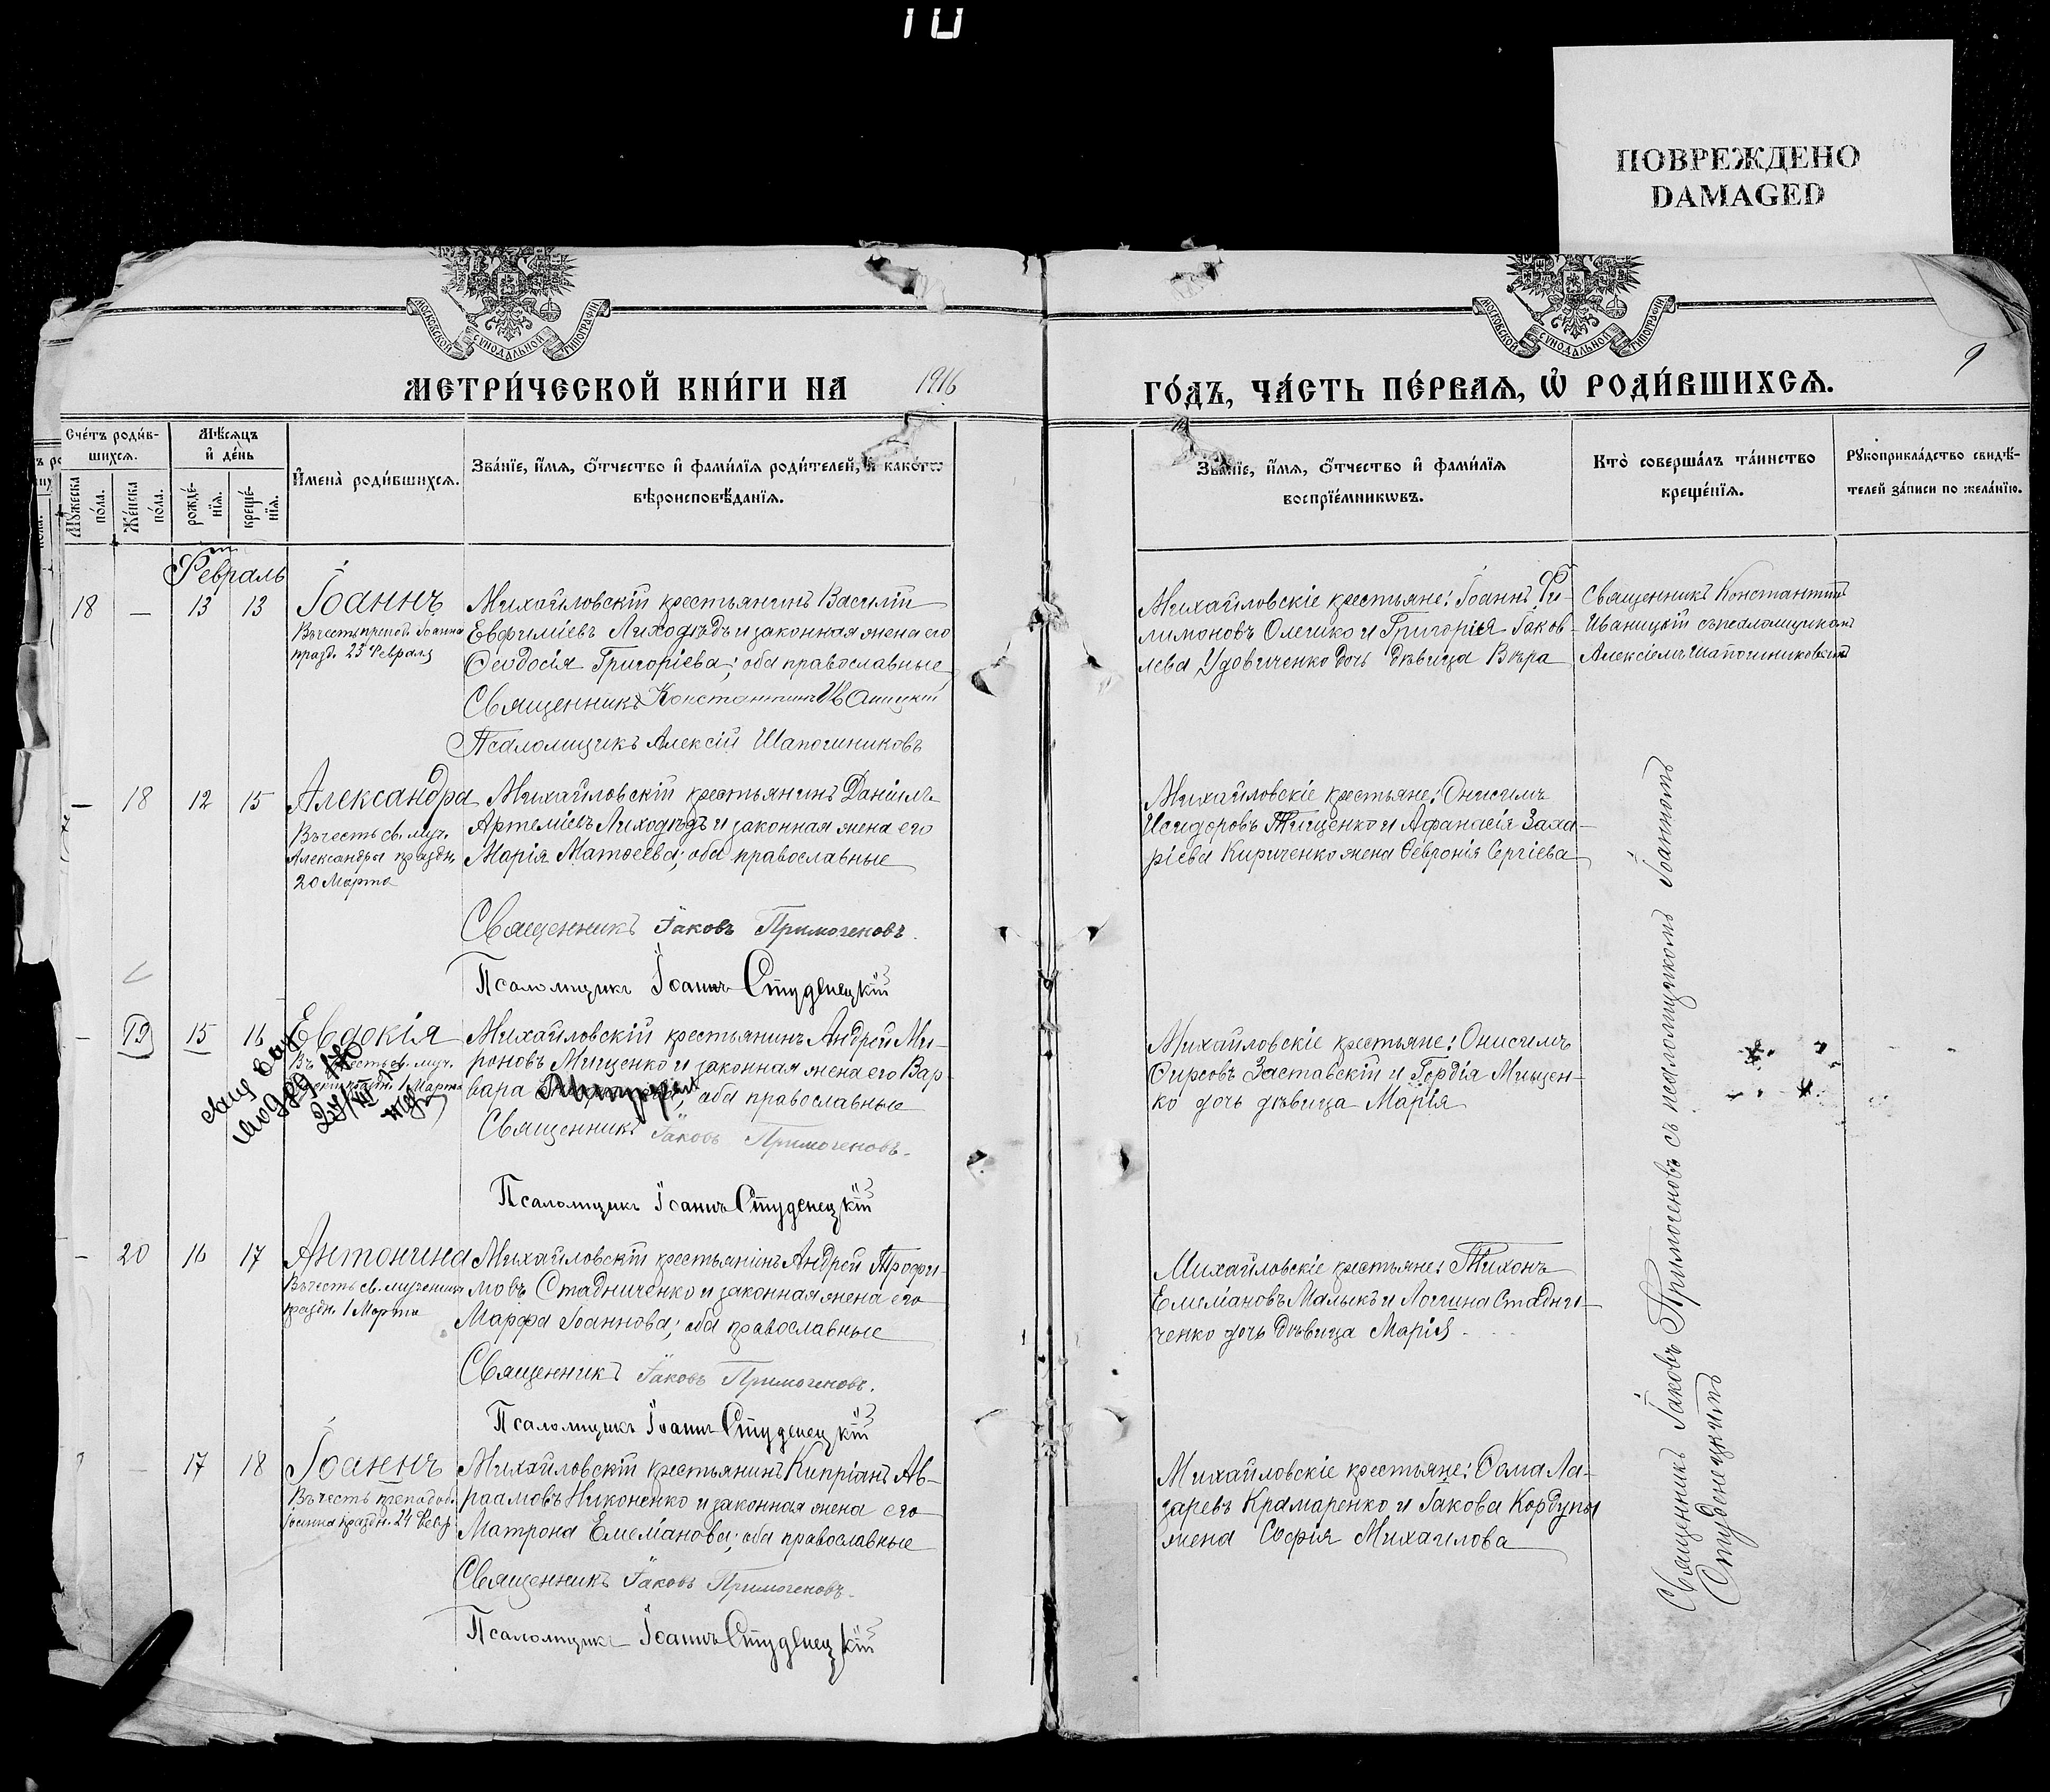 ПОВРЕЖДЕНО
DAMAGED
МОСКОВСКОЙ СѴНОДАЛЬНОЙ ТИПОГРАФІИ
МОСКОВСКОЙ СѴНОДАЛЬНОЙ ТИПОГРАФІИ
МЕТРИ́ЧЕСКОЙ КНИ́ГИ НА 1916 ГО́ДЪ, ЧА́СТЬ ПЕ́РВАѦ, Ѽ РОДИ́ВШИХСѦ.
9
Сче́тъ роди́в-
шихсѧ.
Мꙋ́жеска по́ла.
Же́нска по́ла.
Мѣ́сѧцъ
и҆ де́нь
рожде́-
нїѧ.
креще́-
нїѧ.
И҆мена̀ роди́вшихсѧ.
Зва́нїе, и҆́мѧ, ѻ҆́тчество и҆ фами́лїѧ роди́телей, и҆ како́гѡ
вѣроисповѣ́данїѧ.
Зва́нїе, и҆́мѧ, ѻ҆́тчество и҆ фами́лїѧ
воспрїе́мникѡвъ.
Кто̀ соверша́лъ та́инство
креще́нїѧ.
Рꙋкоприкла́дство свидѣ́-
телей за́писи по жела́нїю.
Февраль
18 — 13 13
Іоаннъ
Въ честь препод. Іоанна
празд. 23 Февраля
Михайловскій крестьянинъ Василій
Евфиміевъ Лиходѣдъ и законная жена его
Ѳеодосія Григоріева; оба православные
Священникъ Константинъ Иваницкій
Псаломщикъ Алексій Шапочниковъ
Михайловскіе крестьяне: Іоаннъ Фи-
лимоновъ Олешко и Григорія Іаков-
лева Удовиченко дочь дѣвица Вѣра
Священникъ Константинъ
Иваницкій съ псаломщикомъ
Алексіемъ Шапочниковымъ
— 18 12 15
Александра
Въ честь св. муч.
Александры праздн.
20 Марта
Михайловскій крестьянинъ Даніилъ
Артеміевъ Лиходѣдъ и законная жена его
Марія Матѳеева; оба православные
Священникъ Іаковъ Примогеновъ.
Псаломщикъ Іоаннъ Студенецкій
Михайловскіе крестьяне: Онисимъ
Исидоровъ Тищенко и Аѳанасія Заха-
ріева Кириченко жена Ѳевронія Сергіева
— 19 15 16
Евдокія
Въ честь св. муч.
1 Марта
Михайловскій крестьянинъ Андрей Ми-
роновъ Мищенко и законная жена его Вар-
вара оба православные
Священникъ Іаковъ Примогеновъ.
Псаломщикъ Іоаннъ Студенецкій
Михайловскіе крестьяне: Онисимъ
Ѳирсовъ Заставскій и Гордія Мищен-
ко дочь дѣвица Марія
— 20 16 17
Антонина
Въ честь св. мученицы
праздн. 1 Марта
Михайловскій крестьянинъ Андрей Трофи-
мовъ Стадниченко и законная жена его
Марфа Іоаннова; оба православные
Священникъ Іаковъ Примогеновъ.
Псаломщикъ Іоаннъ Студенецкій
Михайловскіе крестьяне: Тихонъ
Емеліановъ Малыкъ и Логгина Стадни-
ченко дочь дѣвица Марія
17 18
Іоаннъ
Въ честь преподоб.
Іоанна праздн. 24 Февр.
Михайловскій крестьянинъ Кипріанъ Ав-
раамовъ Никоненко и законная жена его
Матрона Емеліанова; оба православные
Священникъ Іаковъ Примогеновъ.
Псаломщикъ Іоаннъ Студенецкій
Михайловскіе крестьяне: Ѳома Ла-
заревъ Крамаренко и Іакова Кордупы
жена Софія Михаилова
Священникъ Іаковъ Примогеновъ съ псаломщикомъ Іоанномъ
Студенецкимъ